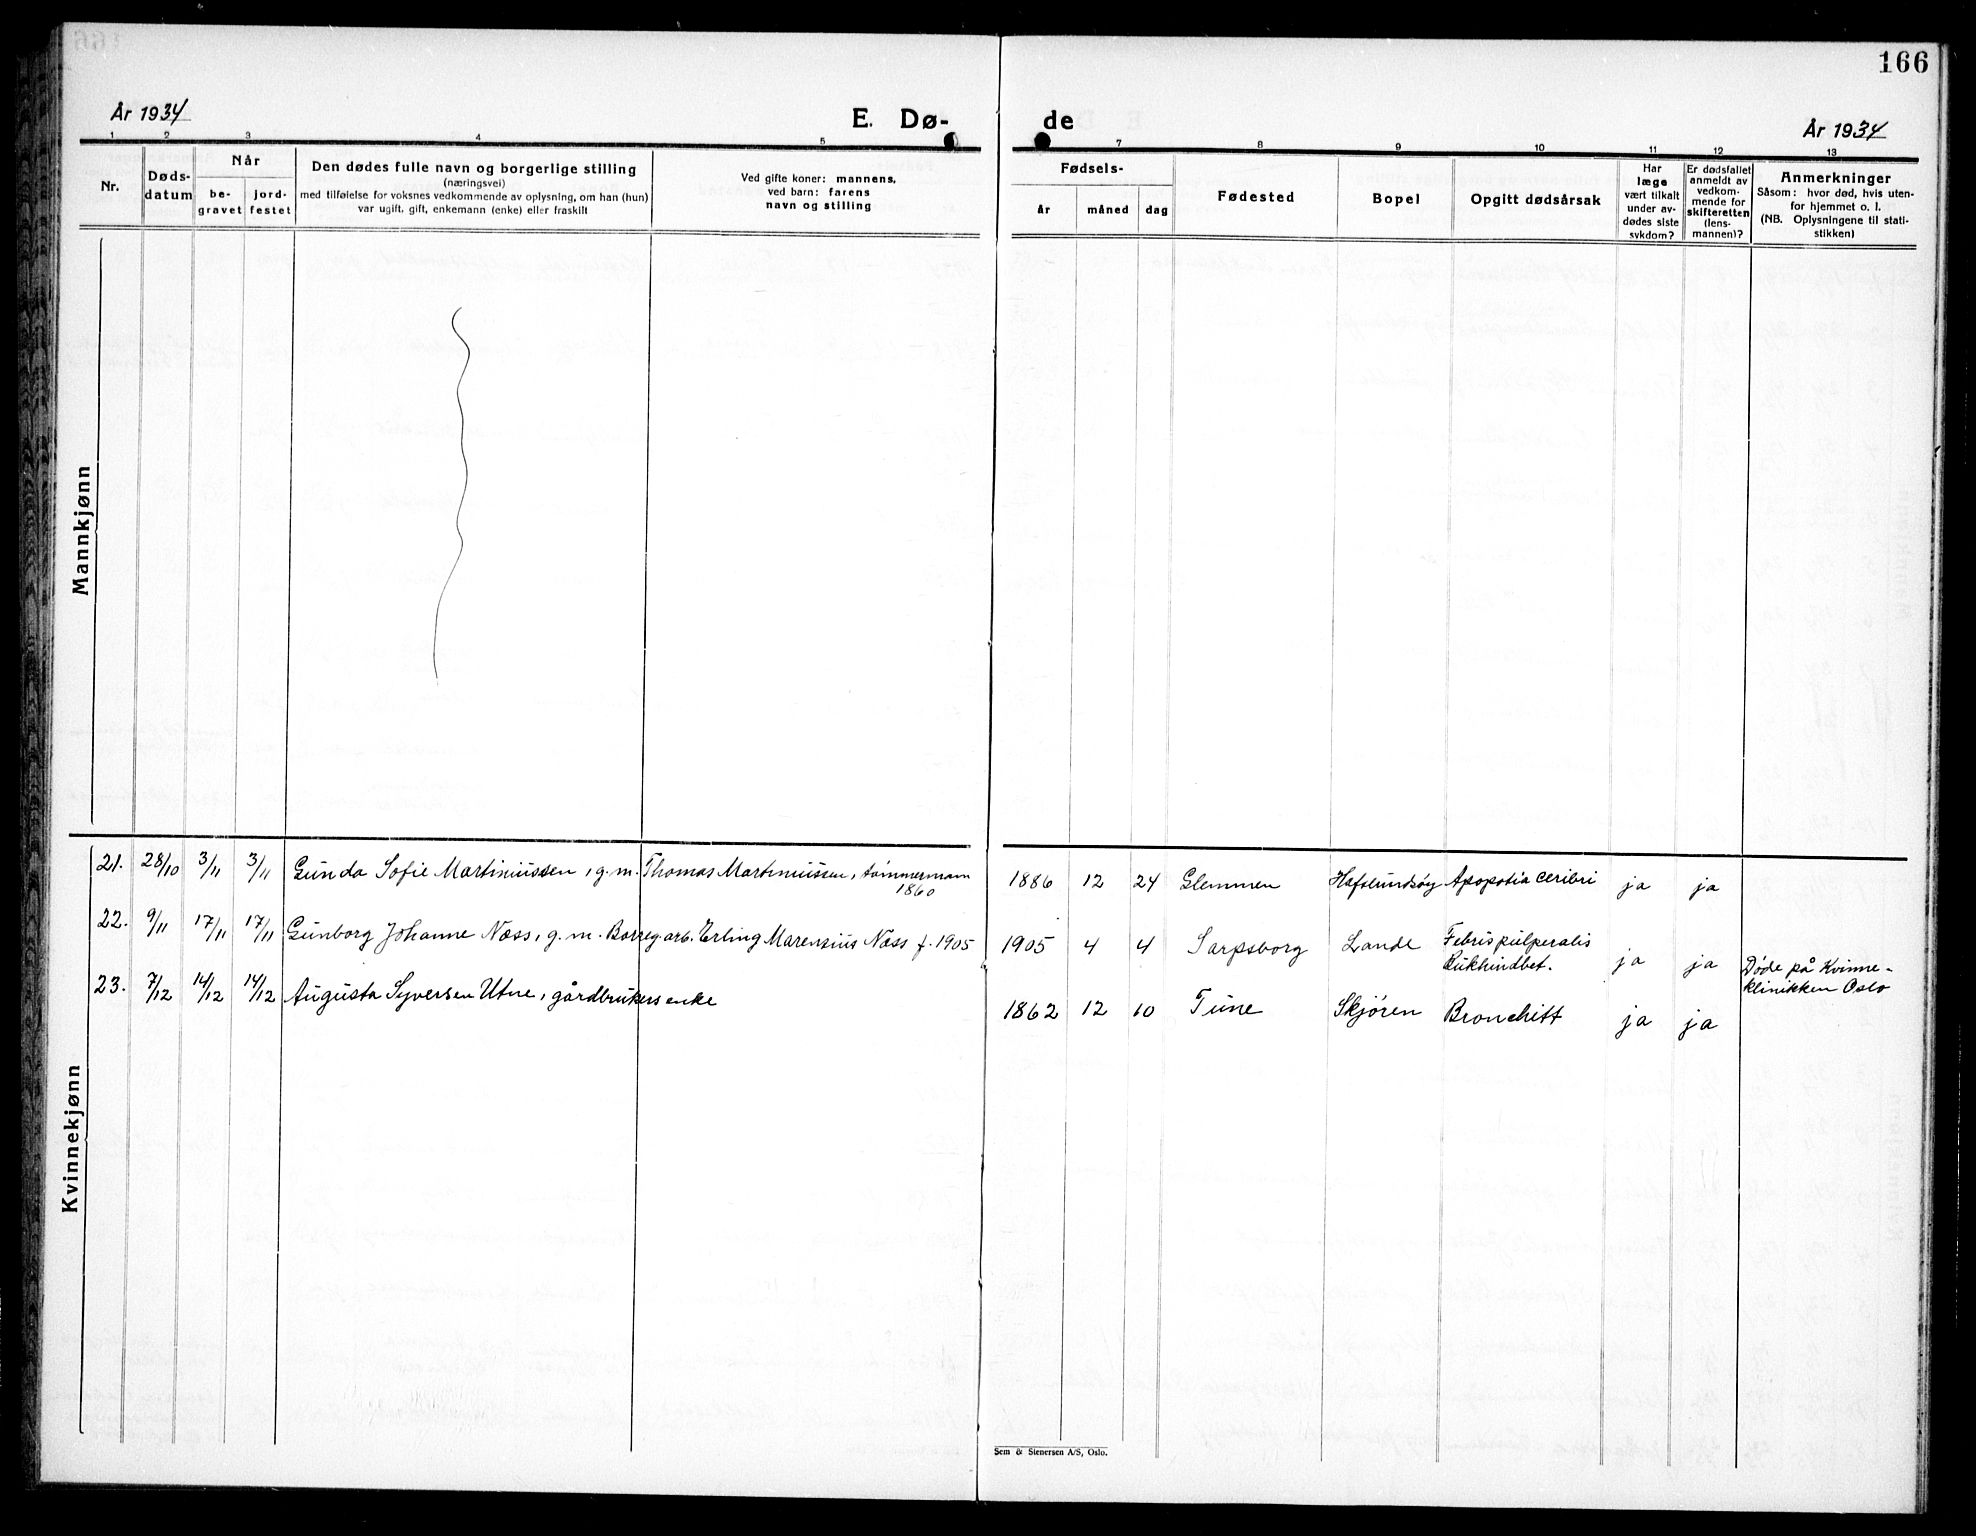 166
År 1934
E. Dø-
de
År 1934
1 2 3 4 5 7 8 9 10 11 12 13
Nr.
Døds-
datum
Når
be-
gravet
jord-
festet
Den dødes fulle navn og borgerlige stilling
(næringsvei)
med tilføielse for voksnes vedkommende av oplysning, om han (hun)
var ugift, gift, enkemann (enke) eller fraskilt
Ved gifte koner: mannens,
ved barn: farens
navn og stilling
Fødsels-
år
måned
dag
Fødested
Bopel
Opgitt dødsårsak
Har
læge
vært tilkalt
under av-
dødes siste
sykdom?
Er dødsfallet
anmeldt av
vedkom-
mende for
skifteretten
(lens-
mannen)?
Anmerkninger
Såsom: hvor død, hvis uten-
for hjemmet o. l.
(NB. Oplysningene til stati-
stikken)
Mannkjønn
Kvinnekjønn
21. 28/10 3/11 3/11 Gunda Sofie Martiniussen, g. m. Thomas Martiniussen, tømmermann
1860
1886 12 24 Glemmen Hafslundsøy Apopotia ceribri ja ja
22. 9/11 17/11 17/11 Gunborg Johanne Næss, g. m. Borreg.arb. Erling Marensius Næss f. 1905
1905 4 4 Sarpsborg Lande Febris pulperalis
Lukhindbet. ja ja Døde på Kvinne-
klinikken Oslo
23. 7/12 14/12 14/12 Augusta Syversen Utne, gårdbrukers enke
1862 12 10 Tune Skjøren Bronchitt ja ja
Sem & Stenersen A/S, Oslo.